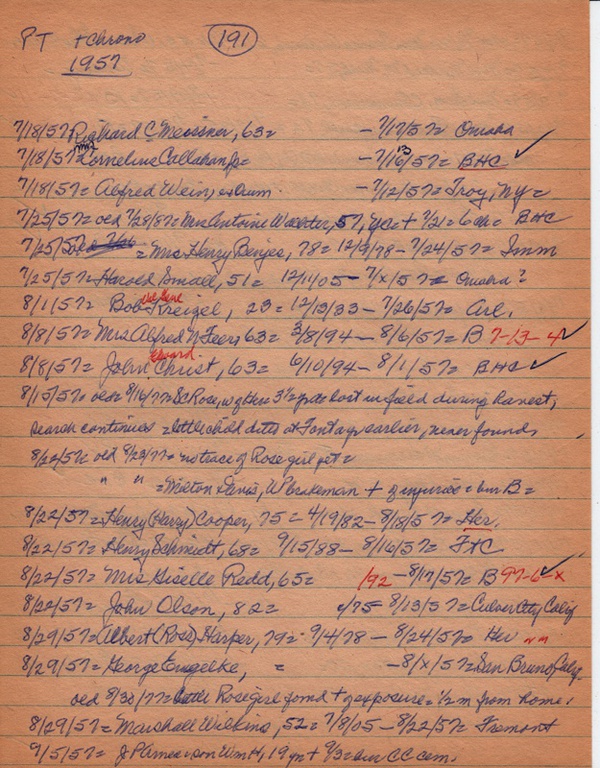 PT + Chrono 191
1957
7/18/57= Richard C Meissner, 63= - 7/17/57= Omaha
7/18/57= Cornelius Callahan Jr= - 7/16/57= BHC ✓
7/18/57= Alfred Wein, - 7/12/57= Troy, NY=
7/25/57= old 7/28/87= Mrs Antoine 57, + 7/21= = BHC
7/25/57= = Mrs Henry Benjes, 78= 12/9/78 - 7/24/57= Imm
7/25/57= Harold Small, 51= 12/11/05 - 7/x/57= Omaha?
8/1/57= Bob Kreizel, 23= 12/13/33 - 7/26/57= Arl.
8/8/57= Mrs Alfred N Feers 63= 3/8/94 - 8/6/57= B 7-13-4 ✓
8/8/57= John Edward Christ, 63= 6/10/94 - 8/1/57= BHC ✓
8/15/57= old 8/16/77= Rose, 3½ lost in field during harvest,
search continues = little child died at Fontanelle earlier, never found
8/22/57= old 8/23/77= no trace of Rose girl yet=
" " = Milton Davis, UP brakeman + of injuries = bur B=
8/22/57= Henry (Harry) Cooper, 75= 4/19/82 - 8/18/57= Her.
8/22/57= Henry Schmidt, 68= 9/15/88 - 8/16/57= FtC
8/22/57= Mrs Hiselle Redd, 65= /92 - 8/17/57= B 97-6-x ✓
8/22/57= John Olson, 82= c/75 - 8/13/57= Culver City Calif
8/29/57= Albert (Ross) Harper, 79= 9/4/78 - 8/24/57= Her nm
8/29/57= George Engelke, = - 8/x/57= San Bruno, Calif.
old 8/30/77= little Rose girl found + of exposure= ½ m from home.
8/29/57= Marshall Wilkins, 52= 7/8/05 - 8/22/57= Fremont
9/5/57= J P son Wm H, 19 yr + 9/3= bur CC cem.